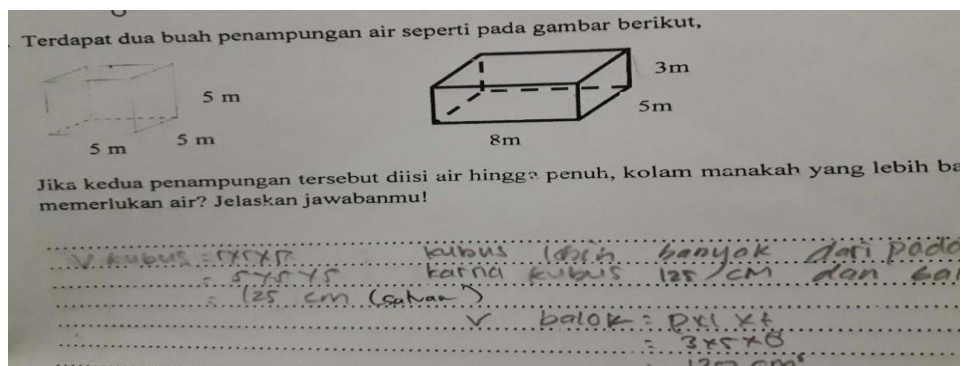 Terdapat dua buah penampungan air seperti pada gambar berikut,
5 m
5 m
5 m
3m
5m
8m
Jika kedua penampungan tersebut diisi air hingga penuh, kolam manakah yang lebih ba
memerlukan air? Jelaskan jawabanmu!
V kubus =
= 5x5x5
= 125 cm
kubus lebih banyak dari pada
karna kubus 125 cm dan ba
V balok = pxl xt
= 3x5x8